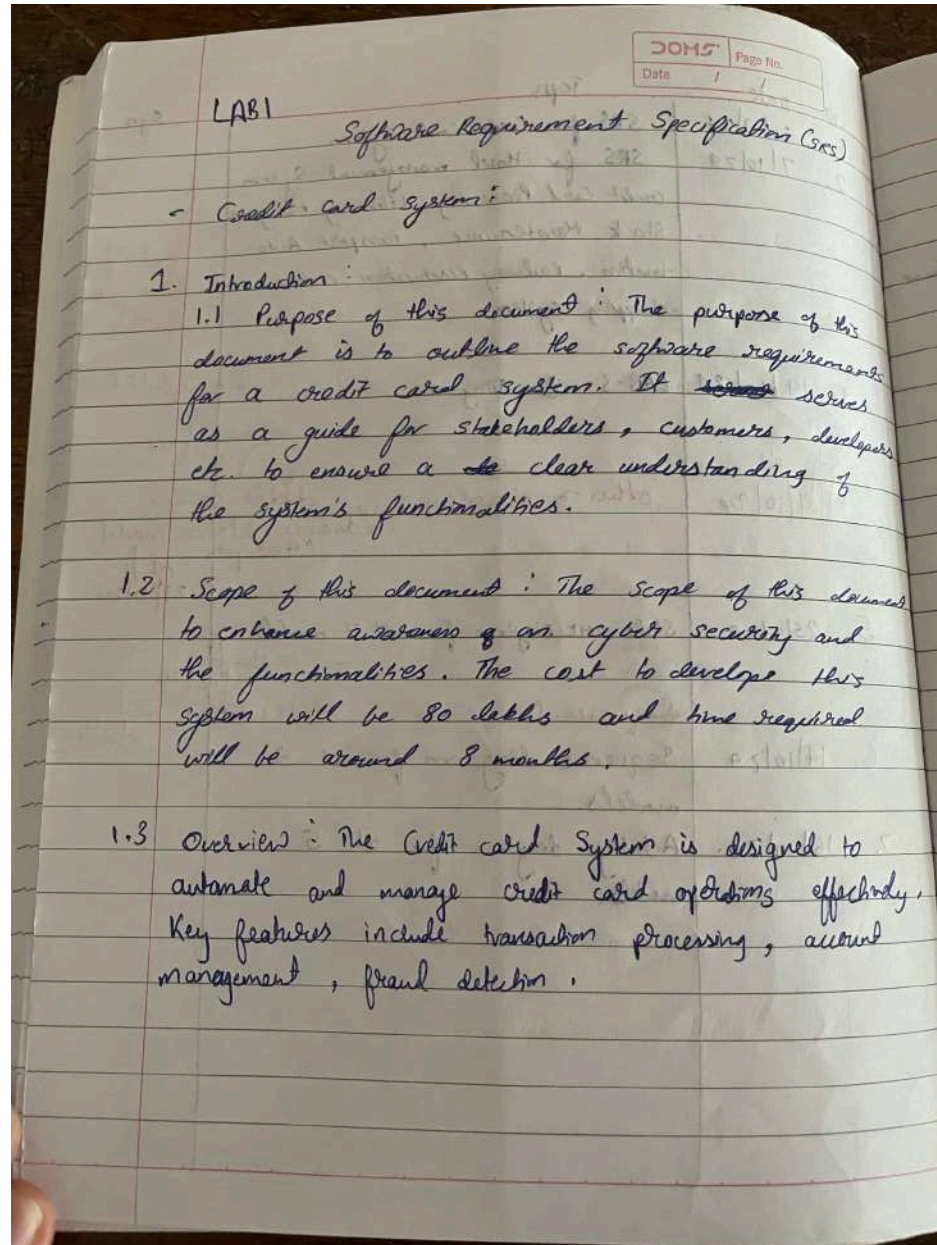 DOMS Page No.
Date / /
LAB1
Software Requirement Specification (SRS)
- Credit card system :
1. Introduction :
1.1 Purpose of this document : The purpose of this
document is to outline the software requirements
for a credit card system. It serves
as a guide for stakeholders, customers, developers
etc. to ensure a clear understanding of
the system's functionalities.
1.2 Scope of this document : The scope of this document
to enhance awareness on cyber security and
the functionalities. The cost to develope this
system will be 80 lakhs and time required
will be around 8 months.
1.3 Overview : The Credit card System is designed to
automate and manage credit card operations effectively.
Key features include transaction processing, account
management, fraud detection.